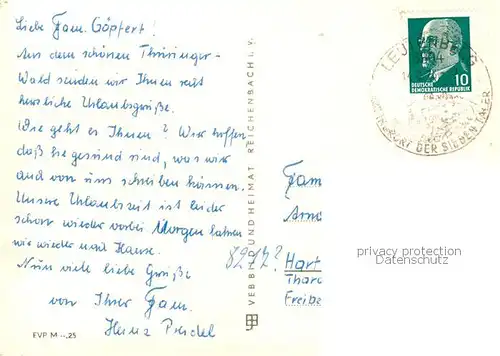 Liebe Fam. Göpfert!
Aus dem schönen Thüringer-
Wald senden wir Ihnen recht
herzliche Urlaubsgrüße.
Wie geht es Ihnen? Wir hoffen
daß Sie gesund sind, was wir
auch von uns schreiben können.
Unsere Urlaubszeit ist leider
schon wieder vorbei Morgen fahren
wir wieder nach Hause.
Nun viele liebe Grüße
von Ihrer Fam.
Heinz
EVP M -.,25
VEB BILD UND HEIMAT REICHENBACH I. V.
LEUTENBERG
DER SIEBEN TÄLER
DEUTSCHE
DEMOKRATISCHE REPUBLIK
10
Fam
Arno
8212?
Hart
Thara
Freibe
privacy protection
Datenschutz